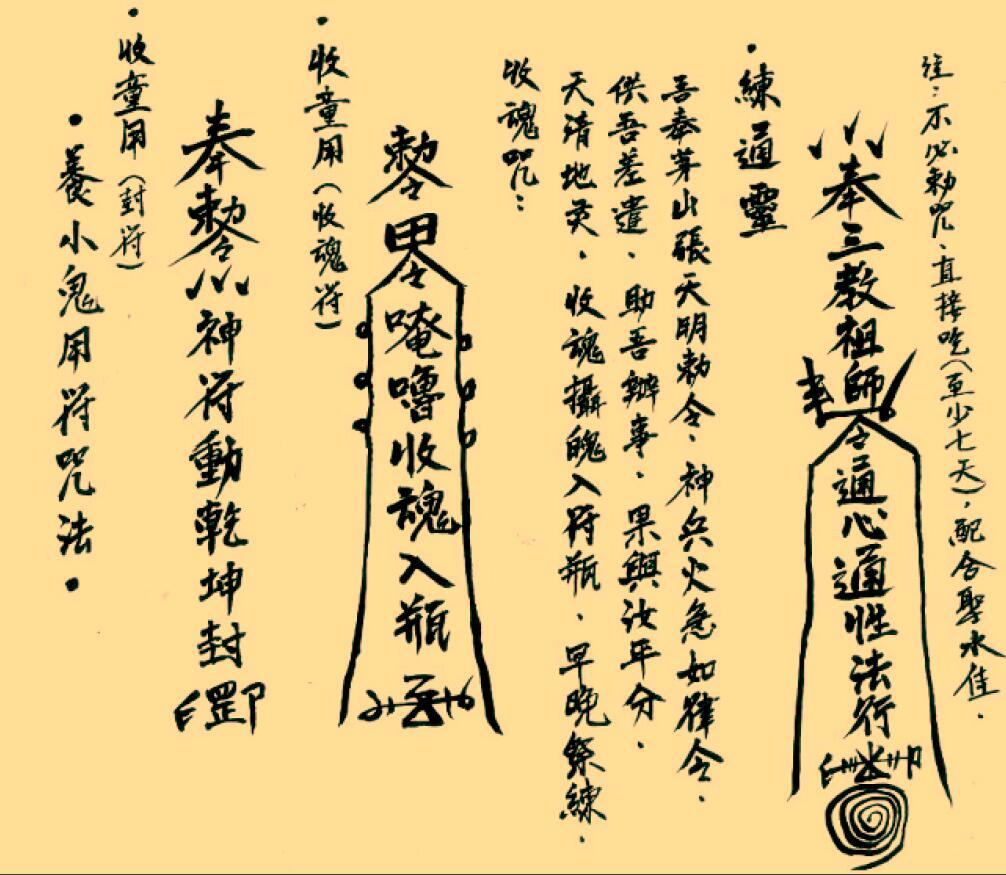 ·養小鬼用符咒法·
·收童用(封符)
奉勅令神符動乾坤封罡
·收童用(收魂符)
勅令甲令唵嚕收魂入瓶
收魂咒:
天清地灵、收魂攝魄入符瓶、早晚祭練.
供吾差遣、助吾辦事、果與汝平分.
吾奉茅山張天明勅令、神兵火急如律令.
·練通靈
奉三教祖師令通心通性法行
注:不必勅咒、直接吃(至少七天)、配合聖水佳.